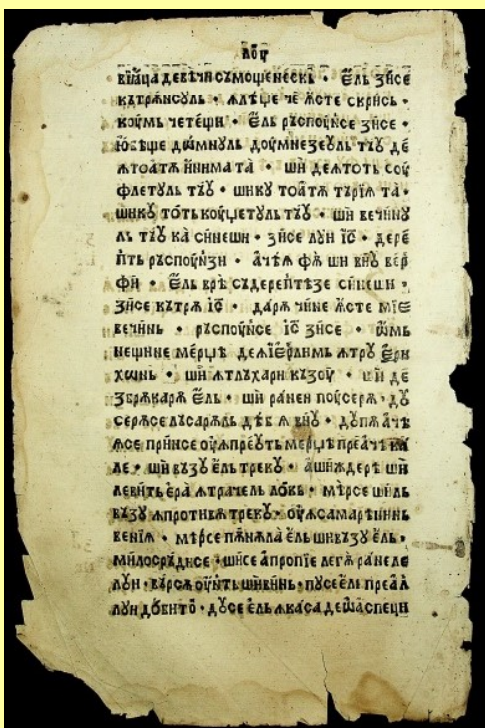 лоу
вїѧца девѣчи сѫмощенескь • єль зисе
кѫтрѫнсꙋль • ꙟлѣџе че ꙗсте скрись •
коумь четещи • єль рѫспоунсе зисе •
юбѣще дѡмнꙋль доумнезеꙋль тѫꙋ де
ꙟтоатѫ йнима та • ши деꙟтоть соу
флетꙋль тѫꙋ • шикꙋ тоатѫ тѫрїѧ та •
шикꙋ тоть коуџетꙋль тѫꙋ • ши вечинꙋ
ль тѫꙋ ка синещи • зисе лꙋи і҃с • дере
пть рѫспоунзи • ачѣꙗ фѫ ши вїю вер
фи • єль врѣ сѫдерептѣзе синещи •
зисе кѫтрѫ і҃с • дарѫ чине ꙗсте мїе
вечинь • рѫспоунсе і҃с зисе • ѡмь
нещине мерџѣ деꙟїєр҃лимь ꙟтрꙋ єри
хѡнь • ши ꙟтлхари кѫзоу • ши де
збрѫкарѫ єль • ши ранен поусерѫ • дꙋ
серѫсе лѫсарѫль дѣ б ꙗ вїю • дꙋпѫачѣ
ꙗсе принсе оуꙗ преѹть мерџѣ преачѣ ка
ле • ши вѫзꙋ єль трекꙋ • ашиждерѣ ши
левить єра ꙟтрачель локь • мѣрсе шиль
вѫзꙋ ꙟпротивѫ трекꙋ • оуꙗ самарѣнинь
венїꙗ • мѣрсе пѫнѫла єль шивѫзꙋ єль •
милосрьдисе • шисе апропїе легѫ ранеле
лꙋи • вѫрсѫ оунть шивинь • пꙋсе єль преал
лꙋи добитѡ • дꙋсе єль ꙟкаса деѡаспеци